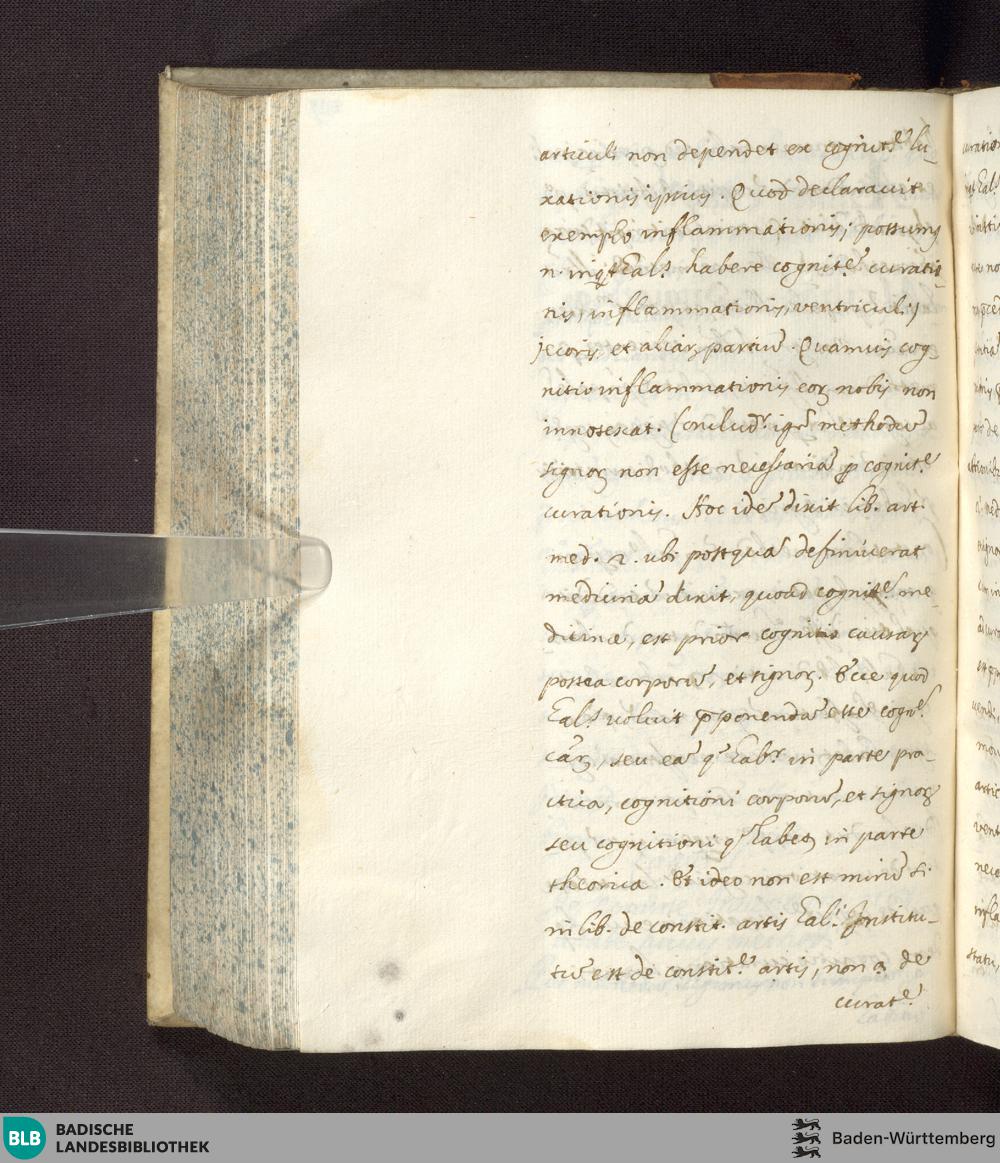 articuli non dependet ex cognit.e lu-
xationis ipsius. Quod declaravit
exemplo inflammationis; possumus
n. inqt Gal.s habere cognit.e curatio-
nis, inflammationis, ventriculi,
jecoris, et aliarꝝ partiū. Quamvis cog-
nitio inflammationis eoꝝ nobis non
innotescat. Concludr. igr methodū
signoꝝ non esse necessariā ꝓ cognit.e
curationis. Hoc idē dixit lib. art.
med. 2. ubi postquā definiverat
medicinā dixit, quoad cognit.e me-
dicinæ, est prior cognitio causarꝝ
postea corporū, et signoꝝ. Ecce quod
Gal.s voluit ꝓponendā esse cogn.e
cāꝝ, seu eā q habr. in parte pra-
ctica, cognitioni corporū, et signoꝝ
seu cognitioni q habet in parte
theorica. Et ideo non est mirū si
in lib. de constit. artis Gal.i Institu-
tū est de constit.e artis, non a de
curat.e
BLB BADISCHE
LANDESBIBLIOTHEK
Baden-Württemberg